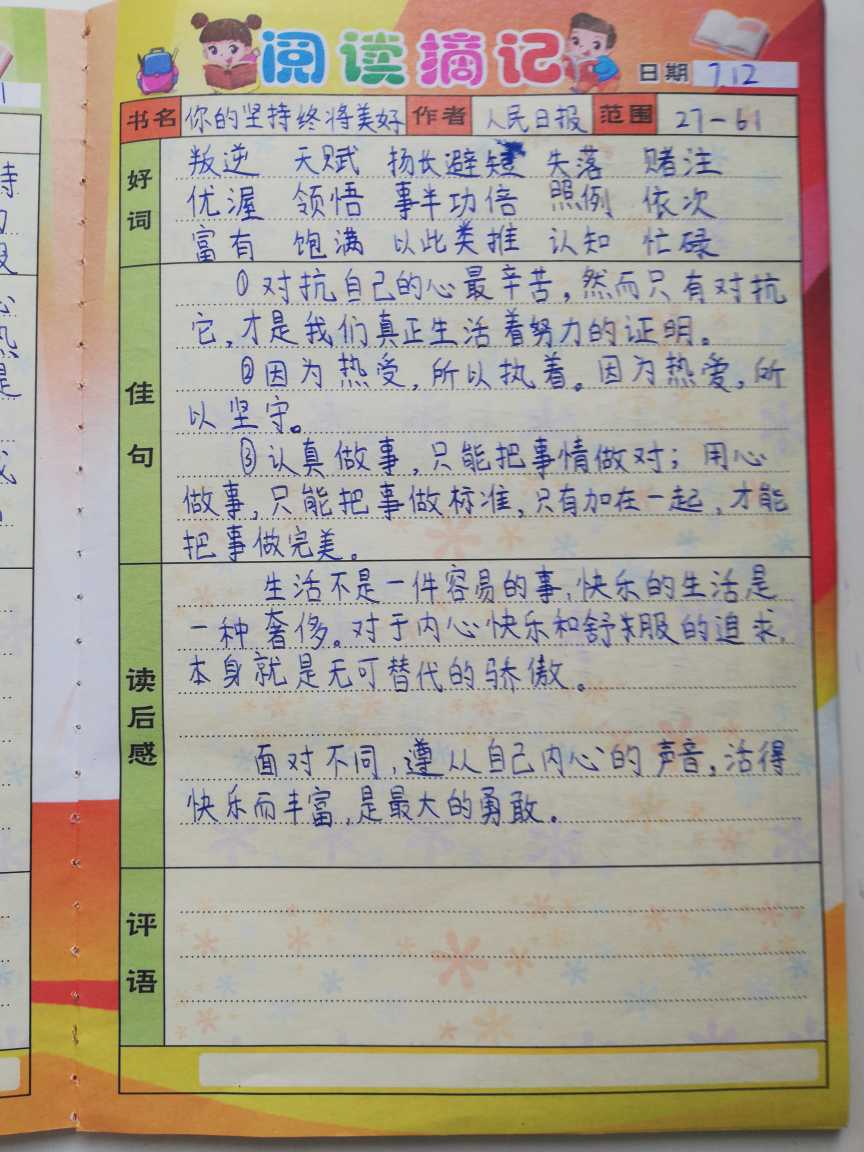 阅读摘记
日期 7.12
书名 你的坚持终将美好 作者 人民日报 范围 27-61
好词
叛逆 天赋 扬长避短 失落 赌注
优渥 领悟 事半功倍 照例 依次
富有 饱满 以此类推 认知 忙碌
佳句
①对抗自己的心最辛苦,然而只有对抗
它,才是我们真正生活着努力的证明。
②因为热受,所以执着。因为热爱,所
以坚守。
③认真做事,只能把事情做对;用心
做事,只能把事做标准,只有加在一起,才能
把事做完美。
读后感
生活不是一件容易的事,快乐的生活是
一种奢侈。对于内心快乐和舒服的追求,
本身就是无可替代的骄傲。
面对不同,遵从自己内心的声音,活得
快乐而丰富,是最大的勇敢。
评语